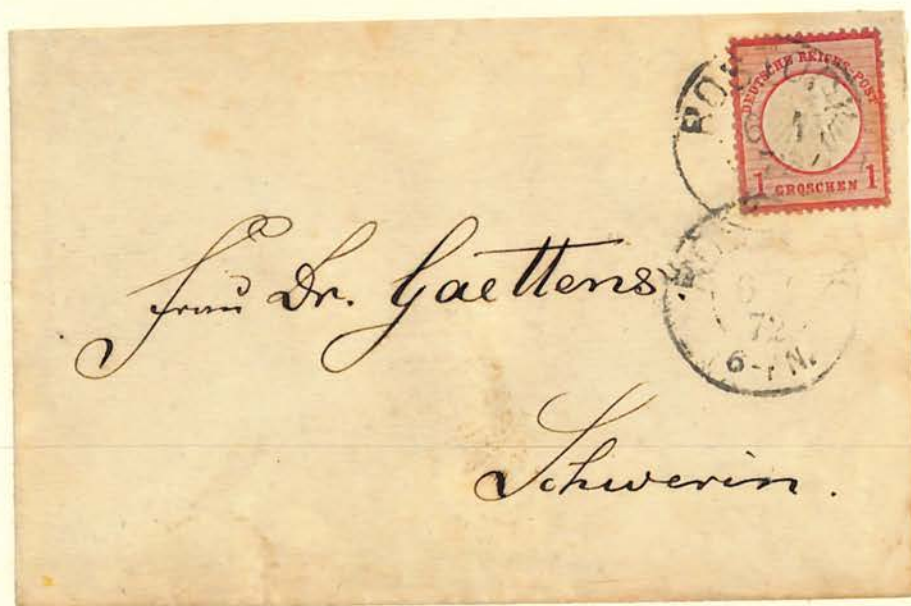 ROSTOCK
DEUTSCHE REICHS-POST
1 GROSCHEN 1
72
6-7 N.
Frau Dr. Gaettens.
Schwerin.